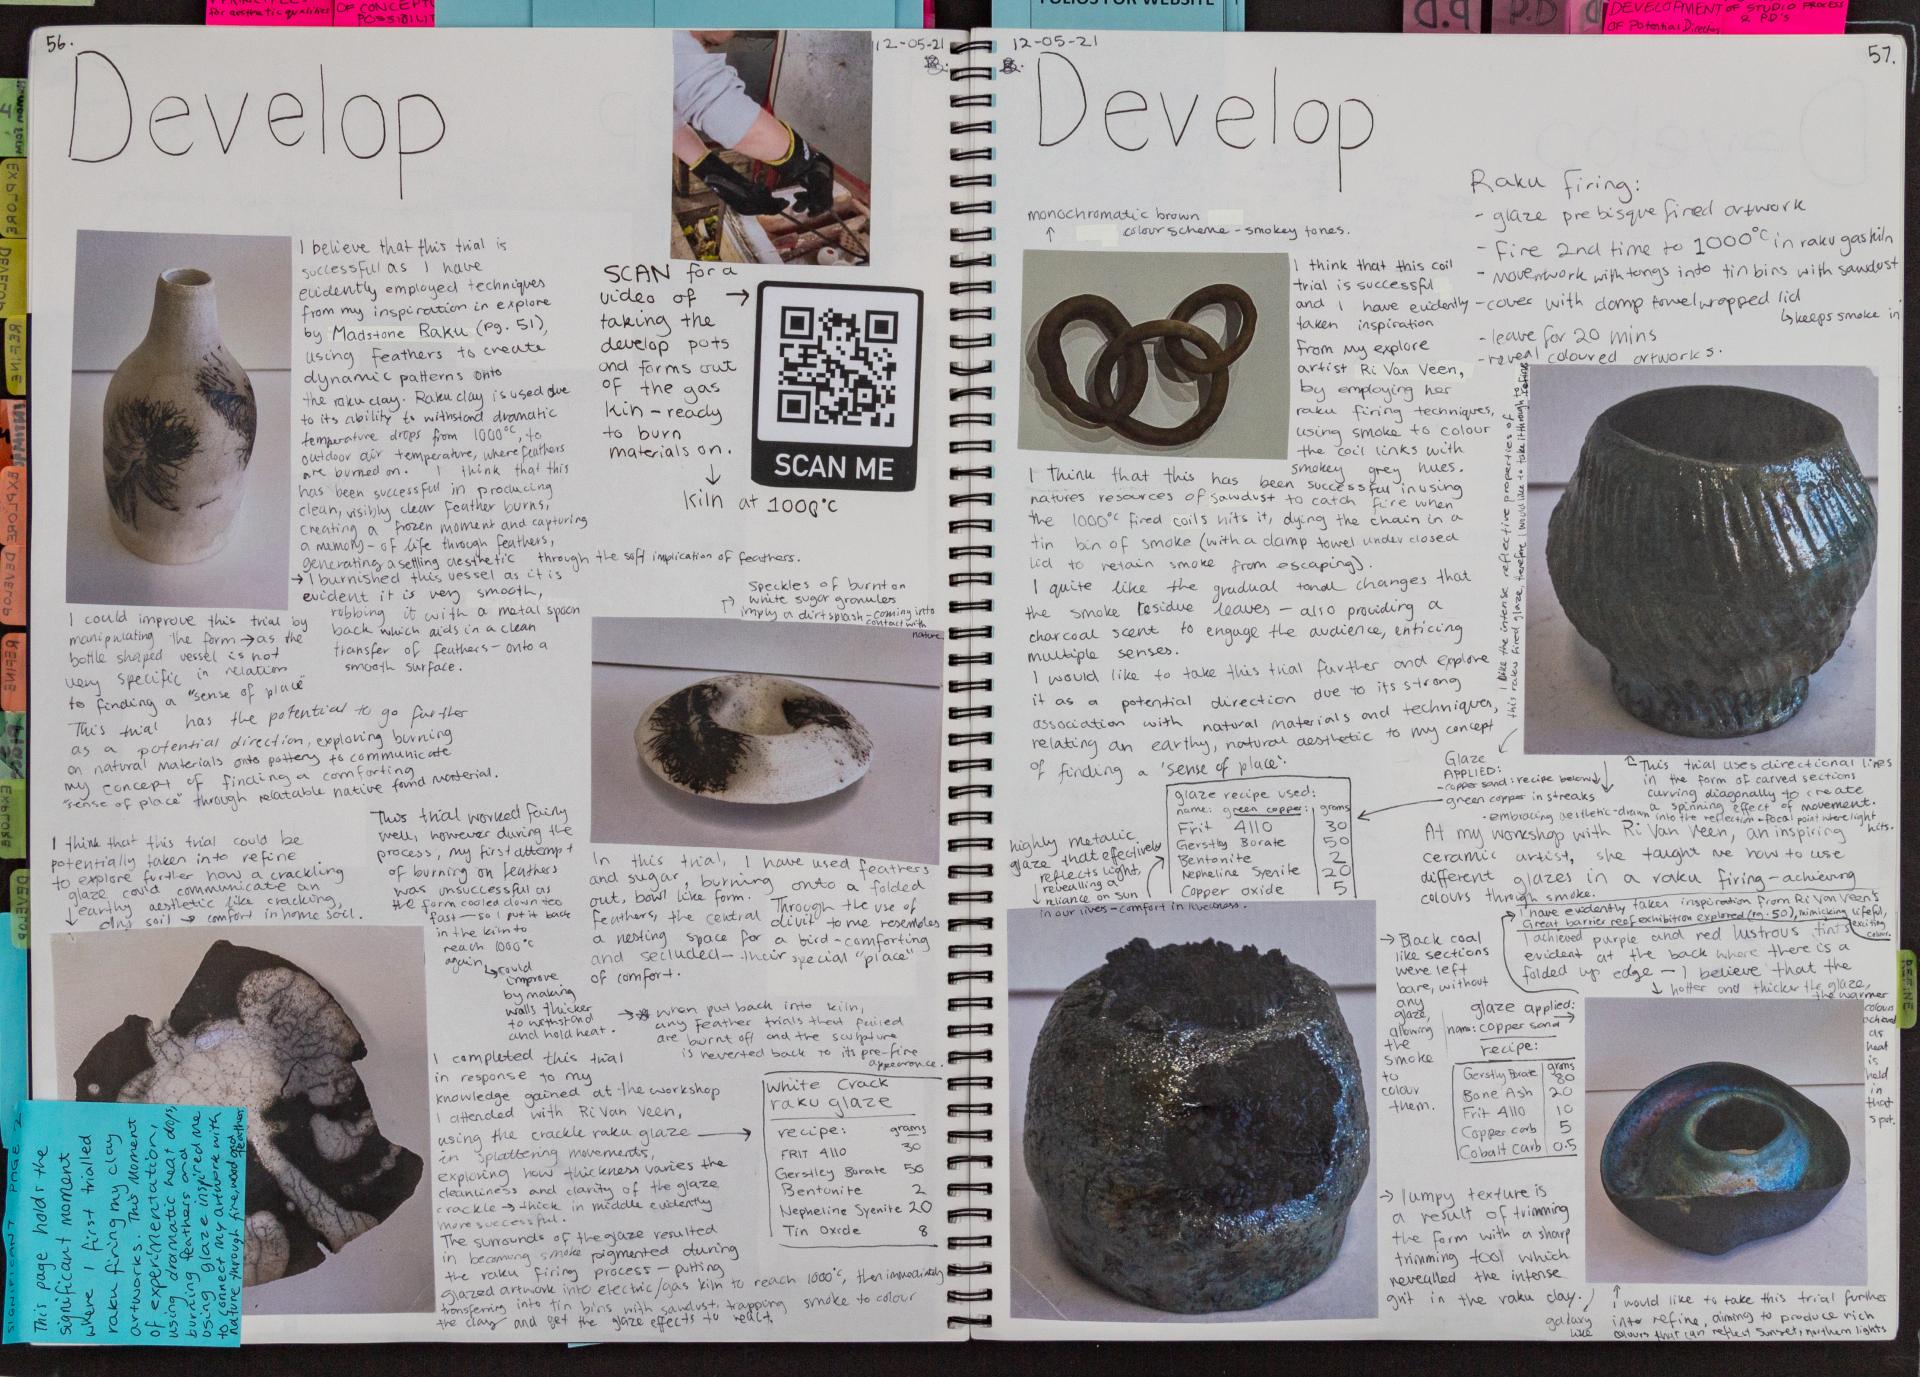 56.
12-05-21
Develop
I believe that this trial is
successful as I have
evidently employed techniques
from my inspiration in explore
by Madstone Raku (pg. 51),
using feathers to create
dynamic patterns onto
the raku clay. Raku clay is used due
to its ability to withstand dramatic
temperature drops from 1000°C, to
outdoor air temperature, where feathers
are burned on. I think that this
has been successful in producing
clean, visibly clear feather burns,
creating a frozen moment and capturing
a memory - of life through feathers,
generating a settling aesthetic through the soft implication of feathers.
→ I burnished this vessel as it is
evident it is very smooth,
robbing it with a metal spoon
back which aids in a clean
transfer of feathers - onto a
smooth surface.
I could improve this trial by
manipulating the form → as the
bottle shaped vessel is not
very specific in relation
to finding a "sense of place"
This trial has the potential to go further
as a potential direction, exploring burning
on natural materials onto pottery to communicate
my concept of finding a comforting
"sense of place" through relatable native found material.
SCAN for a
video of →
taking the
develop pots
and forms out
of the gas
kiln - ready
to burn
materials on.
↓
Kiln at 1000°C
SCAN ME
Speckles of burnt on
white sugar granules
imply a dirt splash - coming into
contact with
nature.
I think that this trial could be
potentially taken into refine
to explore further how a crackling
glaze could communicate an
earthy aesthetic like cracking,
dry soil → comfort in home soil.
This trial worked fairly
well, however during the
process, my first attempt
of burning on feathers
was unsuccessful as
the form cooled down too
fast - so I put it back
in the kiln to
reach 1000°C
again.
↳ could
improve
by making
walls thicker
to withstand
and hold heat.
In this trial, I have used feathers
and sugar, burning onto a folded
out, bowl like form. Through the use of
feathers, the central divit to me resembles
a nesting space for a bird - comforting
and secluded - their special "place"
of comfort.
→ when put back into kiln,
any feather trials that failed
are burnt off and the sculpture
is reverted back to its pre-fire
appearance.
I completed this trial
in response to my
knowledge gained at the workshop
I attended with Ri Van Veen,
using the crackle raku glaze →
in splattering movements,
exploring how thickness varies the
cleanliness and clarity of the glaze
crackle → thick in middle evidently
more successful.
The surrounds of the glaze resulted
in becoming smoke pigmented during
the raku firing process - putting
glazed artwork into electric/gas kiln to reach 1000°C, then immediately
transfering into tin bins with sawdust, trapping smoke to colour
the clay and get the glaze effects to react.
White Crack
raku glaze
recipe: grams
FRIT 4110 30
Gerstley Borate 50
Bentonite 2
Nepheline Syenite 20
Tin Oxide 8
SIGNIFICANT PAGE 2
This page holds the
significant moment
where I first trialled
raku firing my clay
artworks. This moment
of experimentation,
using dramatic heat drops,
burning feathers and
using glaze inspired me
to connect my artwork with
nature through fire, wood and
feather.
12-05-21
57.
Develop
monochromatic brown
colour scheme - smokey tones.
Raku firing:
- glaze pre bisque fired artwork
- Fire 2nd time to 1000°C in raku gas kiln
- move artwork with tongs into tin bins with sawdust
- cover with damp towel wrapped lid
↳ keeps smoke in
- leave for 20 mins
- reveal coloured artworks.
I think that this coil
trial is successful
and I have evidently
taken inspiration
from my explore
artist Ri Van Veen,
by employing her
raku firing techniques,
using smoke to colour
the coil links with
smokey grey hues.
I think that this has been successful in using
natures resources of sawdust to catch fire when
the 1000°C fired coils hits it, dying the chain in a
tin bin of smoke (with a damp towel under closed
lid to retain smoke from escaping).
I quite like the gradual tonal changes that
the smoke residue leaves - also providing a
charcoal scent to engage the audience, enticing
multiple senses.
I would like to take this trial further and explore
it as a potential direction due to its strong
association with natural materials and techniques,
relating an earthy, natural aesthetic to my concept
of finding a 'sense of place'.
I like the intense reflective properties of
this raku fired glaze, therefore I would like to take it through to refine
Glaze
APPLIED:
- copper sand: recipe below
- green copper in streaks
- embracing aesthetic - drawn into the reflection - focal point where light
hits.
This trial uses directional lines
in the form of carved sections
curving diagonally to create
a spinning effect of movement.
glaze recipe used:
name: green copper: grams
Frit 4110 30
Gerstley Borate 50
Bentonite 2
Nepheline Syenite 20
Copper oxide 5
highly metalic
glaze that effectively
reflects light,
revealling a
reliance on sun
in our lives - comfort in liveliness.
At my workshop with Ri Van Veen, an inspiring
ceramic artist, she taught me how to use
different glazes in a raku firing - achieving
colours through smoke.
I have evidently taken inspiration from Ri Van Veen's
Great barrier reef exhibition explored (pg. 50), mimicking lifeful,
exciting
colour.
I achieved purple and red lustrous tints
evident at the back where there is a
folded up edge - I believe that the
↳ hotter and thicker the glaze,
the warmer
colours
achieved
as
heat
is
held
in
that
spot.
→ Black coal
like sections
were left
bare, without
any
glaze,
allowing
the
smoke
to
colour
them.
glaze applied:
name: copper sand
recipe:
grams
Gerstly Borate 80
Bone Ash 20
Frit 4110 10
Copper carb 5
Cobalt carb 0.5
→ lumpy texture is
a result of trimming
the form with a sharp
trimming tool which
revealled the intense
grit in the raku clay.
I would like to take this trial further
into refine, aiming to produce rich
galaxy
like
colours that can reflect sunset, northern lights